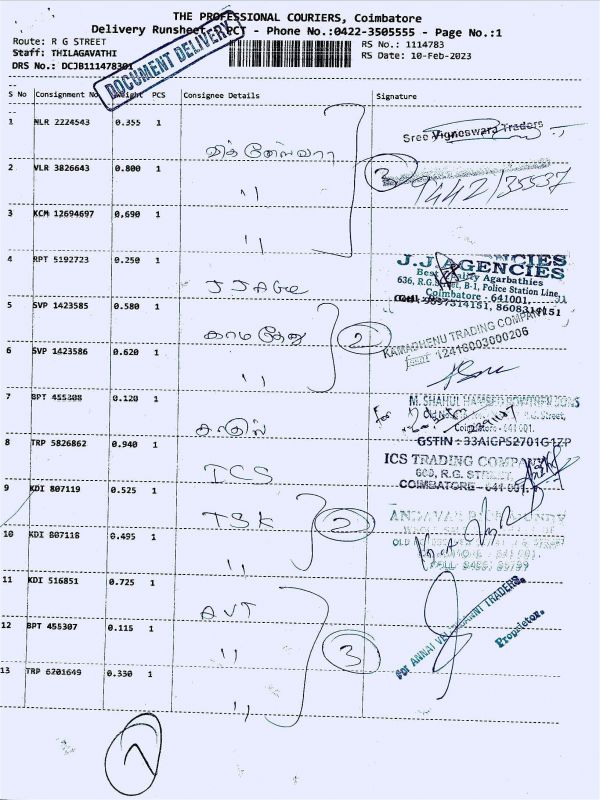 THE PROFESSIONAL COURIERS, Coimbatore
Delivery Runsheet PCT - Phone No.:0422-3505555 - Page No.:1
Route: R G STREET
RS No.: 1114783
Staff: THILAGAVATHI
RS Date: 10-Feb-2023
DRS No.: DCJB111478301
DOCUMENT DELIVERY
S No Consignment No Weight PCS Consignee Details Signature
1 NLR 2224543 0.355 1
Sree Vigneswara Traders
2 VLR 3826643 0.800 1 ''
3
9442135537
3 KCM 12694697 0.690 1 ''
4 RPT 5192723 0.250 1 JJAGE
J.J.AGENCIES
Best Quality Agarbathies
636, R.G.Street, B-1, Police Station Line,
Coimbatore - 641001.
9897314151, 8608314151
5 SVP 1423585 0.580 1 காமதேனு
2
KAMADHENU TRADING COMPANY
12416003000206
6 SVP 1423586 0.620 1 ''
7 BPT 455308 0.120 1
M. SHAHUL HAMEED ROWTHER SONS
R.G. Street,
Coimbatore - 641 001.
GSTIN : 33AIGPS2701G1ZP
8 TRP 5826862 0.940 1 ICS
ICS TRADING COMPANY
608, R.G. STREET,
COIMBATORE - 641 001.
9 KDI 807119 0.525 1 TSK
2
10 KDI 807118 0.495 1 ''
11 KDI 516851 0.725 1 AVT
12 BPT 455307 0.115 1 ''
3
For ANNAI VELANKANNI TRADERS,
Proprietor.
13 TRP 6201649 0.330 1 ''
7